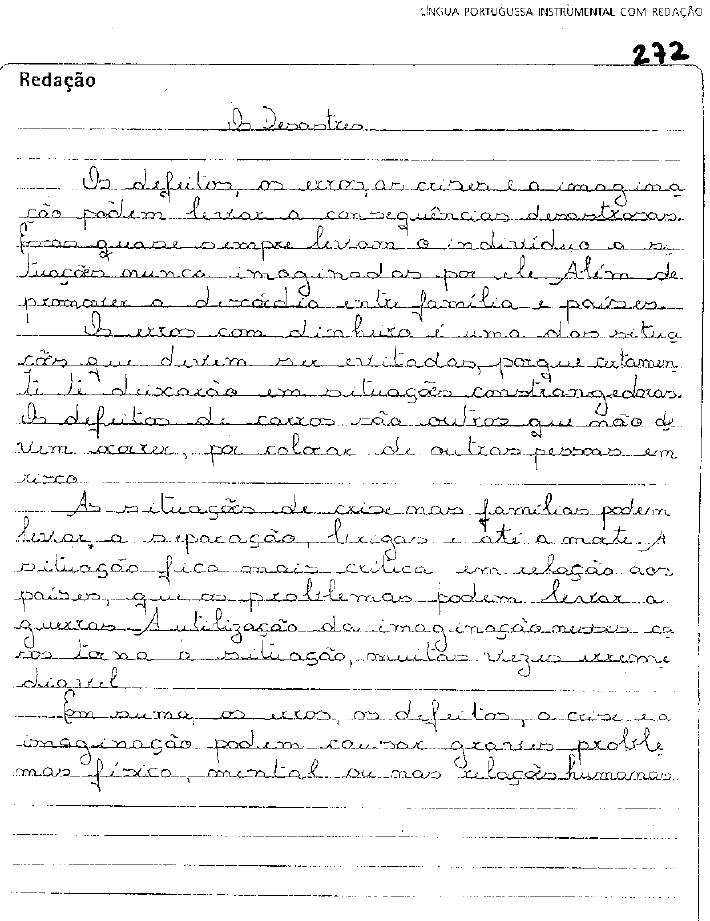 LÍNGUA PORTUGUESA INSTRUMENTAL COM REDAÇÃO
272
Redação
Os Desastres
Os defeitos, os erros, as crises e a imagina
ção podem levar a consequências desastrosas.
Essas quase sempre levam o indivíduo a si
tuações nunca imaginadas por ele. Além de
promover a discórdia entre família e países.
Os erros com dinheiro é uma das situa
ções que devem ser evitadas, porque certamen
te ti deixarão em situações constrangedoras.
Os defeitos de carros são outros que não de
vem ocorrer, por colocar de outras pessoas em
risco.
As situações de crise nas famílias podem
levar, a separação, brigas e até a morte. A
situação fica mais crítica em relação aos
países, que os problemas podem levar a
guerras. A utilização da imaginação nesses ca
sos torna a situação, muitas vezes irreme
diavel.
Em suma, os erros, os defeitos, a crise e a
imaginação podem causar graves proble
mas físico, mental ou nas relações humanas.